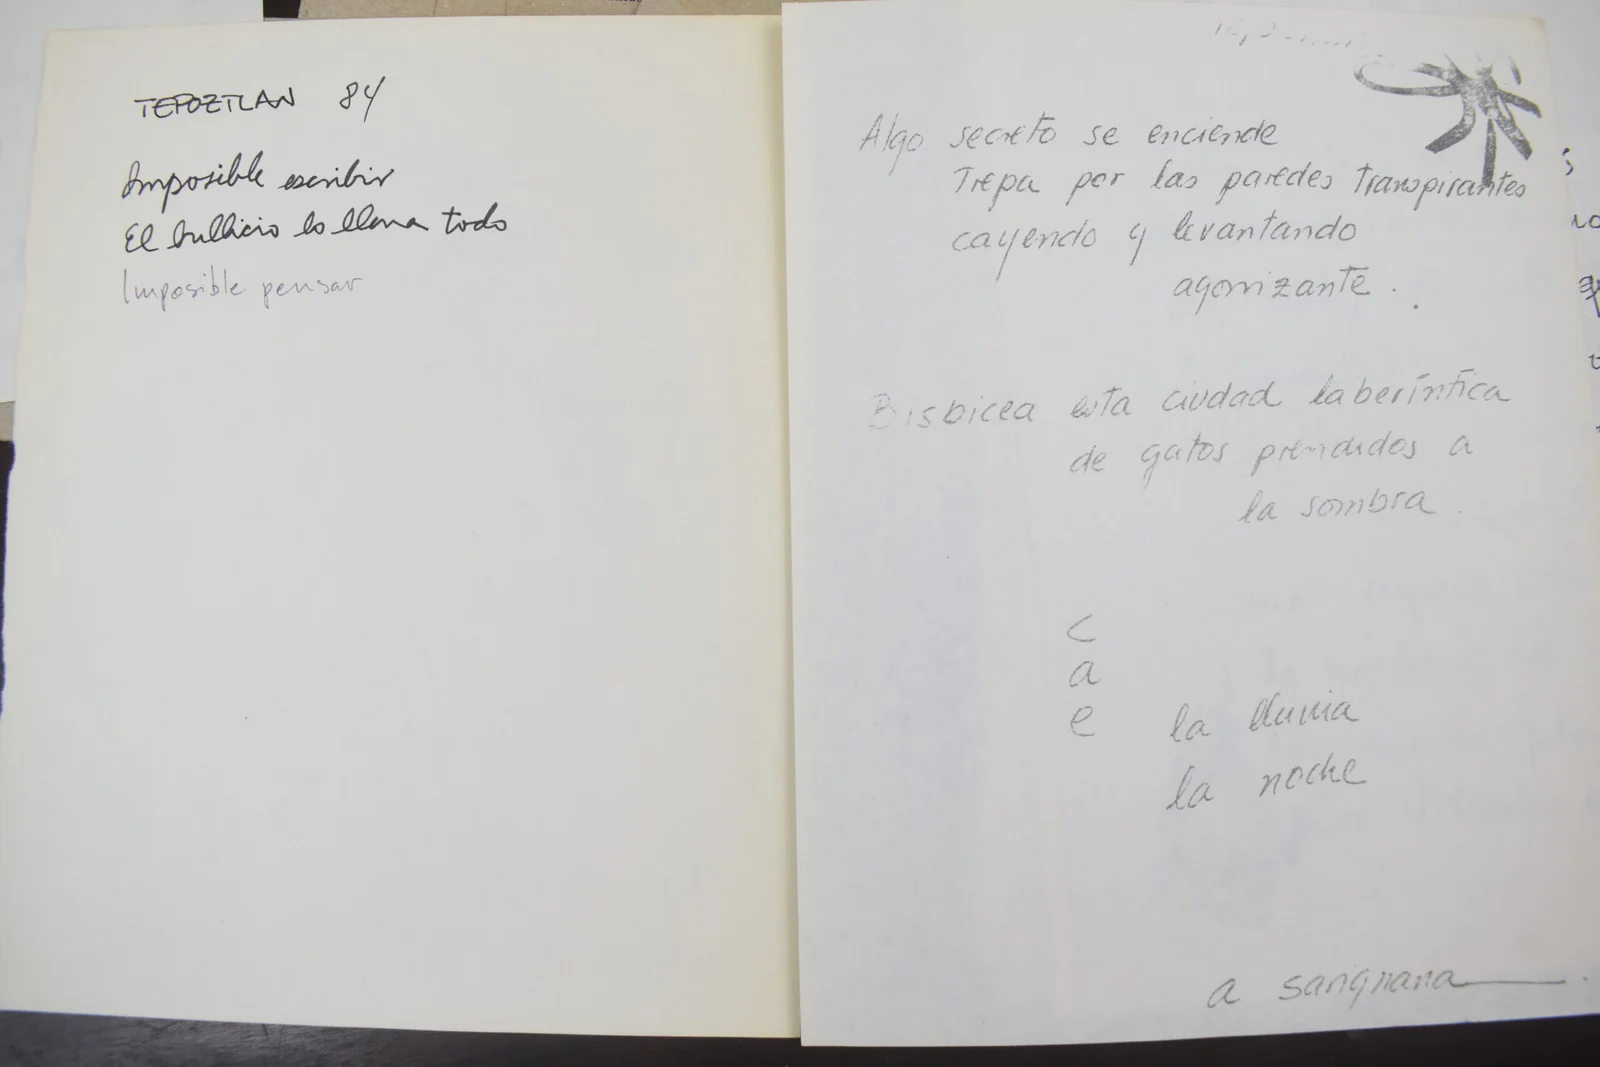 TEPOZTLAN 84
Imposible escribir
El bullicio lo llena todo
Imposible pensar
Algo secreto se enciende
Trepa por las paredes transpirantes
cayendo y levantando
agonizante.
Bisbicea esta ciudad laberíntica
de gatos prendidos a
la sombra.
c
a
e la lluvia
la noche
a sarignana